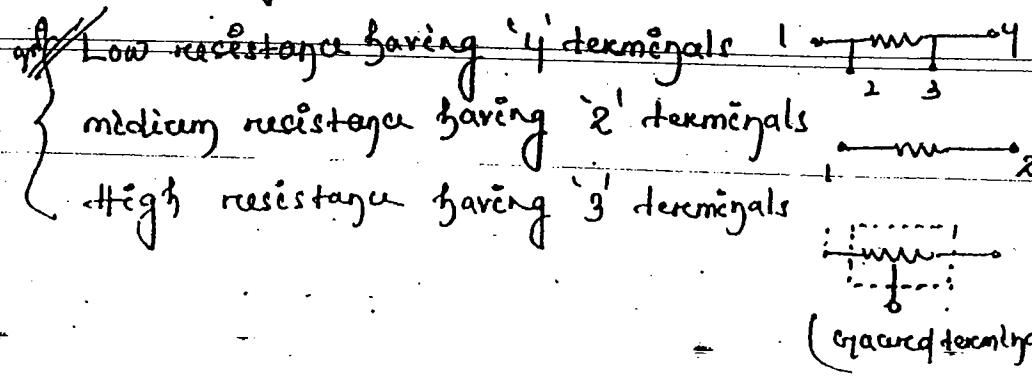 Low resistance having '4' terminals 1 4
2 3
midium resistance having '2' terminals
1 2
High resistance having '3' terminals
(Guared termin